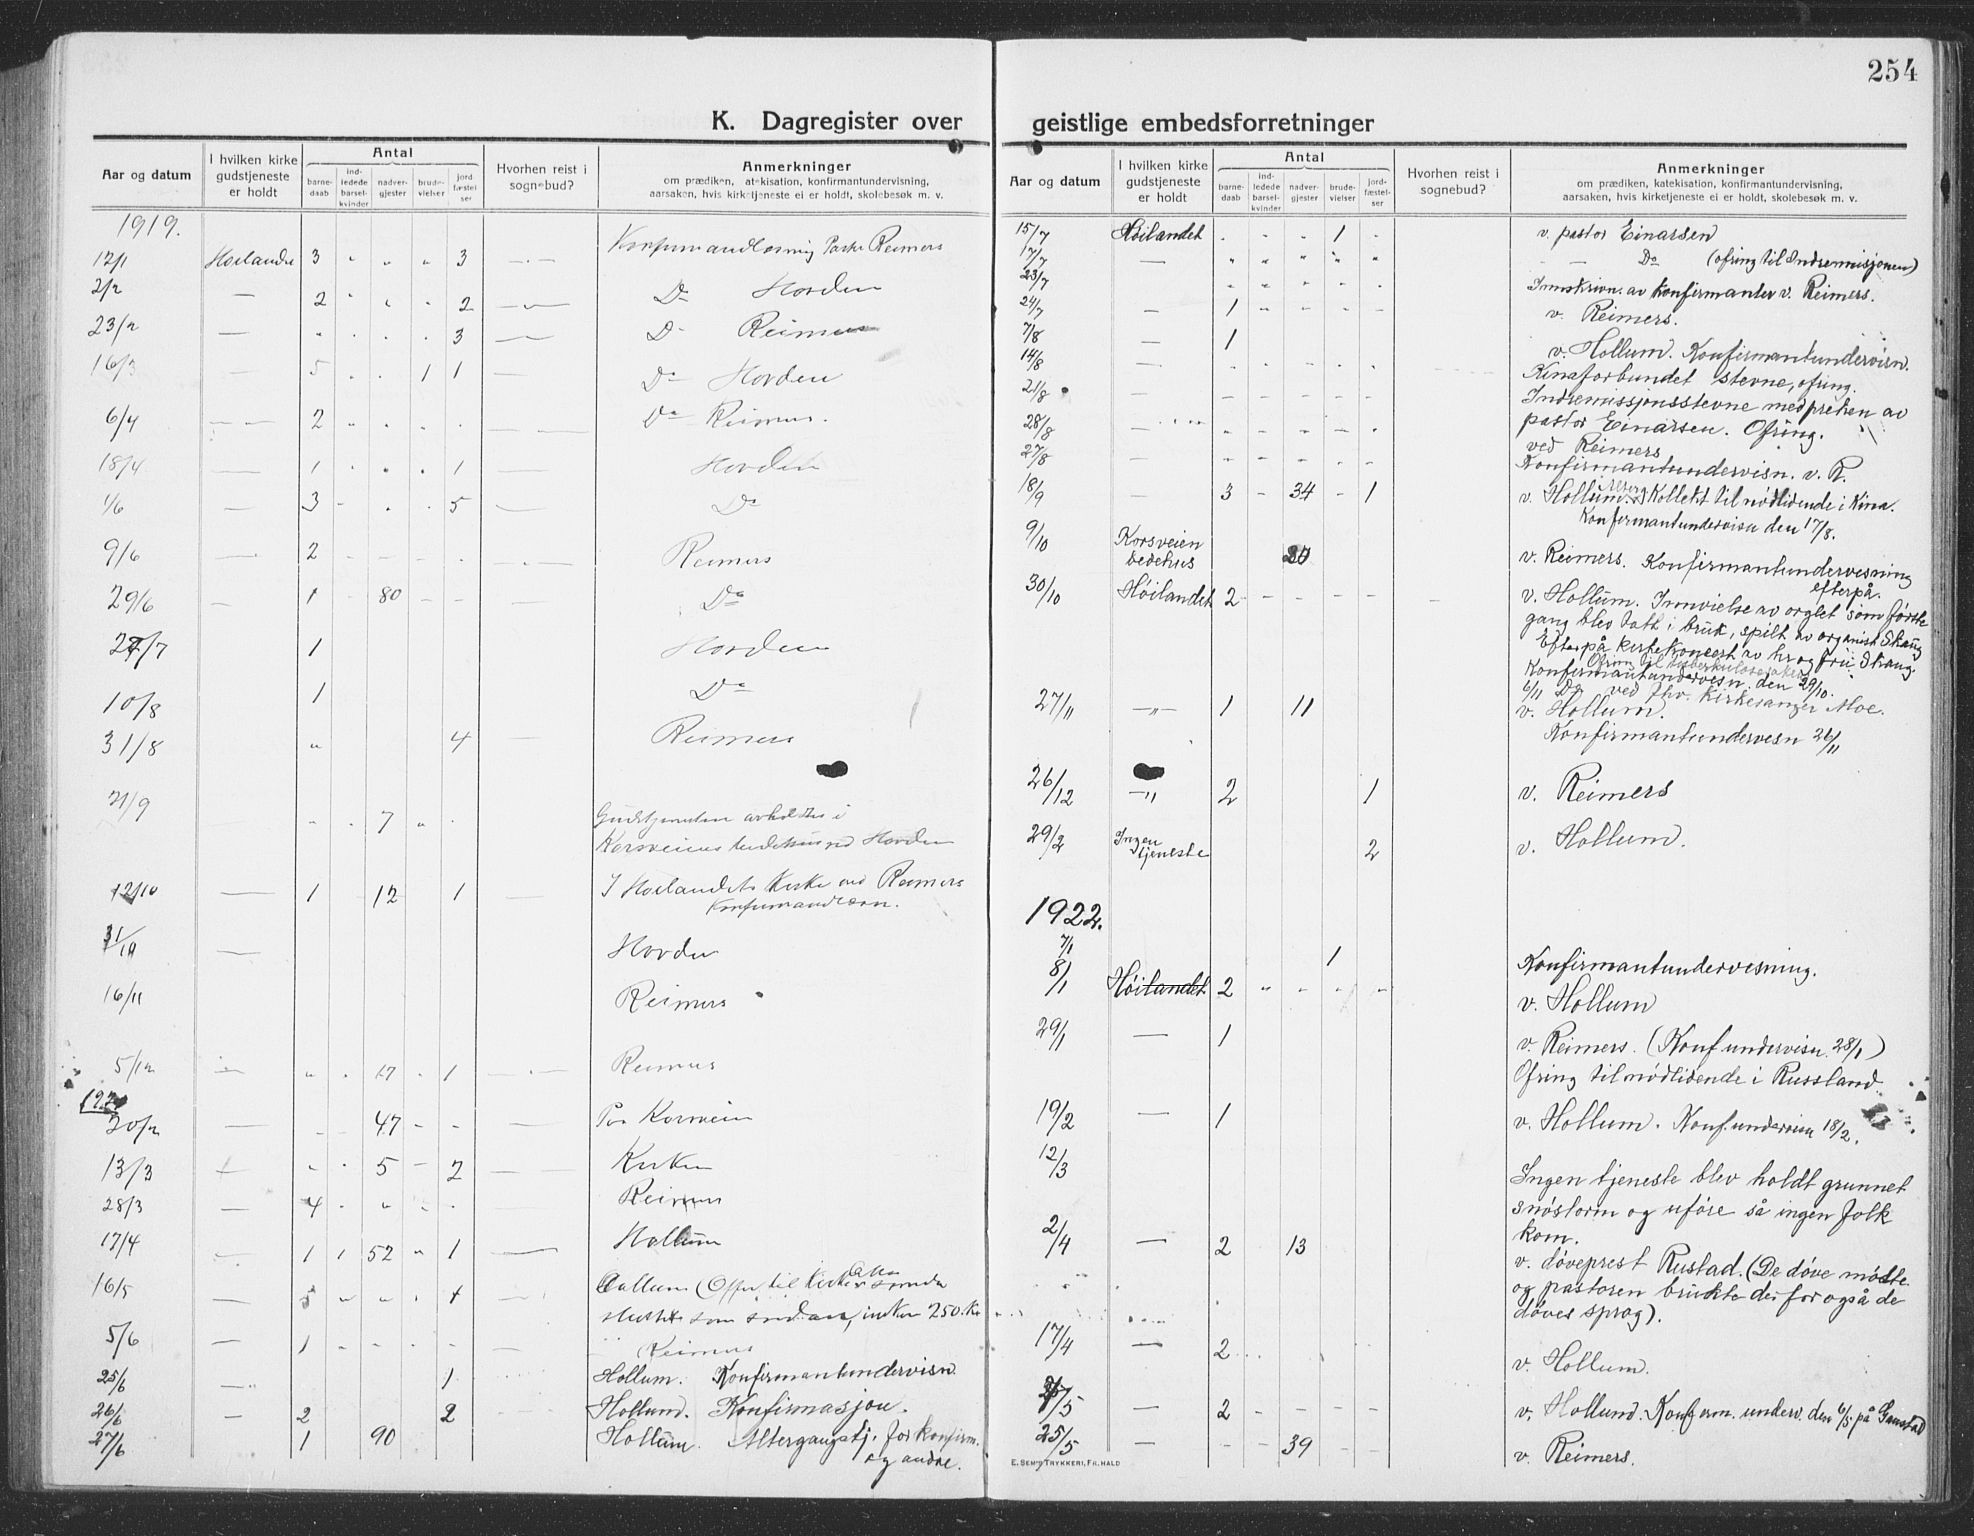 254
K. Dagregister over geistlige embedsforretninger
Aar og datum
I hvilken kirke gudstjeneste er holdt
Antal
barne-daab
ind-ledede barsel-kvinder
nadver-gjester
brude-vielser
jord-fæstel-ser
Hvorhen reist i sognebud?
Anmerkninger
om prædiken, katekisation, konfirmantundervisning,
aarsaken, hvis kirketjeneste ei er holdt, skolebesøk m. v.
1919.
12/1 Hoilandet 3 " " " 3 Reimers
2/2 — 2 " " " 2 Do Horden
23/2 — " . . . 3 Do Reimers
16/3 — 5 . . 1 1 Do Horden
6/4 2 " . . . Do Reimers.
18/4 — 1 " " " 1 Horden
1/6 — 3 - . . 5 Do
9/6 2 Reimers
29/6 — 1 - 80 - - Do
27/7 1 Horden
10/8 1 Do
31/8 " 4 Reimers
21/9 " " 7 " . Gudstjenesten avholdtes i
Korsveiens bedehus ved Horden
12/10 — 1 12 1 I Hoilandets Kirke ved Reimers
Konfirmandlæsn.
— Horden
16/11 Reimers
5/12 " . 17 . 1 Reimers
20/2 — 47 - - Paa Korsveien
13/3 " . 5 - 2 Kirken
28/3 — 4 . " Reimers
17/4 — 1 1 52 " 1 Hollum
16/5 5 " " . Hollum (Offer til
som sendtes, indkom 250. Kr
5/6 1 Reimers
25/6 1 Hollum. Konfirmantundervisn.
26/6 — 2 2 Hollund. Konfirmasjon.
27/6 1 90 Hollum. Altergangstj. for konfirm.
og andre.
Aar og datum
I hvilken kirke gudstjeneste er holdt
Antal
barne-daab
ind-ledede barsel-kvinder
nadver-gjester
brude-vielser
jord-fæstel-ser
Hvorhen reist i sognebud?
Anmerkninger
om prædiken, katekisation, konfirmantundervisning,
aarsaken, hvis kirketjeneste ei er holdt, skolebesøk m. v.
15/7 Høilandet . . . 1 . v. pastor Einarsen
17/7 — " " " " " — Do (ofring til Indremisjonen)
23/7 Innskrivn. av konfirmanter v. Reimers.
24/7 — 1 " - - - v. Reimers.
7/8 — 1 v. Hollum. Konfirmantundervisn.
14/8 — Kinaforbundet stevne, ofring.
21/8 — Indremissjonsstevne med preken av
pastor Einarsen. Ofring.
28/8 ved Reimers
27/8 — Konfirmantundervisn. v. R.
18/9 — 3 - 34 - 1 v. Hollum. Kollekt til nødlidende i Kina.
Konfirmantundervisn den 17/8.
9/10 Korsveien bedehus v. Reimers. Konfirmantundervesning
efterpå.
30/10 Høilandet 2 - - - - v. Hollum. Innvielse av orglet som første
gang blev tatt i bruk, spilt av organist Skaug
Efterpå kirkekoncert av hr og fru Skaug.
Ofring til tuberkulosesaken
Konfirmantundervesn. den 29/10.
6/11 Do ved fhv. Kirkesanger Moe.
27/11 —"— 1 11 v. Hollum.
Konfirmantundervesn 26/11
26/12 —"— 2 1 v. Reimers
29/2 Ingen tjeneste 2 v. Hollum.
1922.
7/1 1 Konfirmantundervesning.
8/1 Høilandet 2 " - - - v. Hollum
29/1 — 1 v. Reimers. (Konf undervisn. 28/1)
Ofring til nødlidende i Russland.
19/2 — 1 v. Hollum. Konf. undervisn 18/2.
12/3 Ingen tjeneste blev holdt grunnet
snøstorm og uføre så ingen folk
kom.
2/4 — 2 13 v. døveprest Rustad. (De døve møtte
og pastoren brukte derfor også de
døves sprog).
17/4 — 2 v. Hollum.
7/5 — 2 v. Hollund. Konferm. underv. den 6/5 på Ganstad
25/5 — - - 39 v. Reimers.
E. SEM'S TRYKKERI, FR.HALD